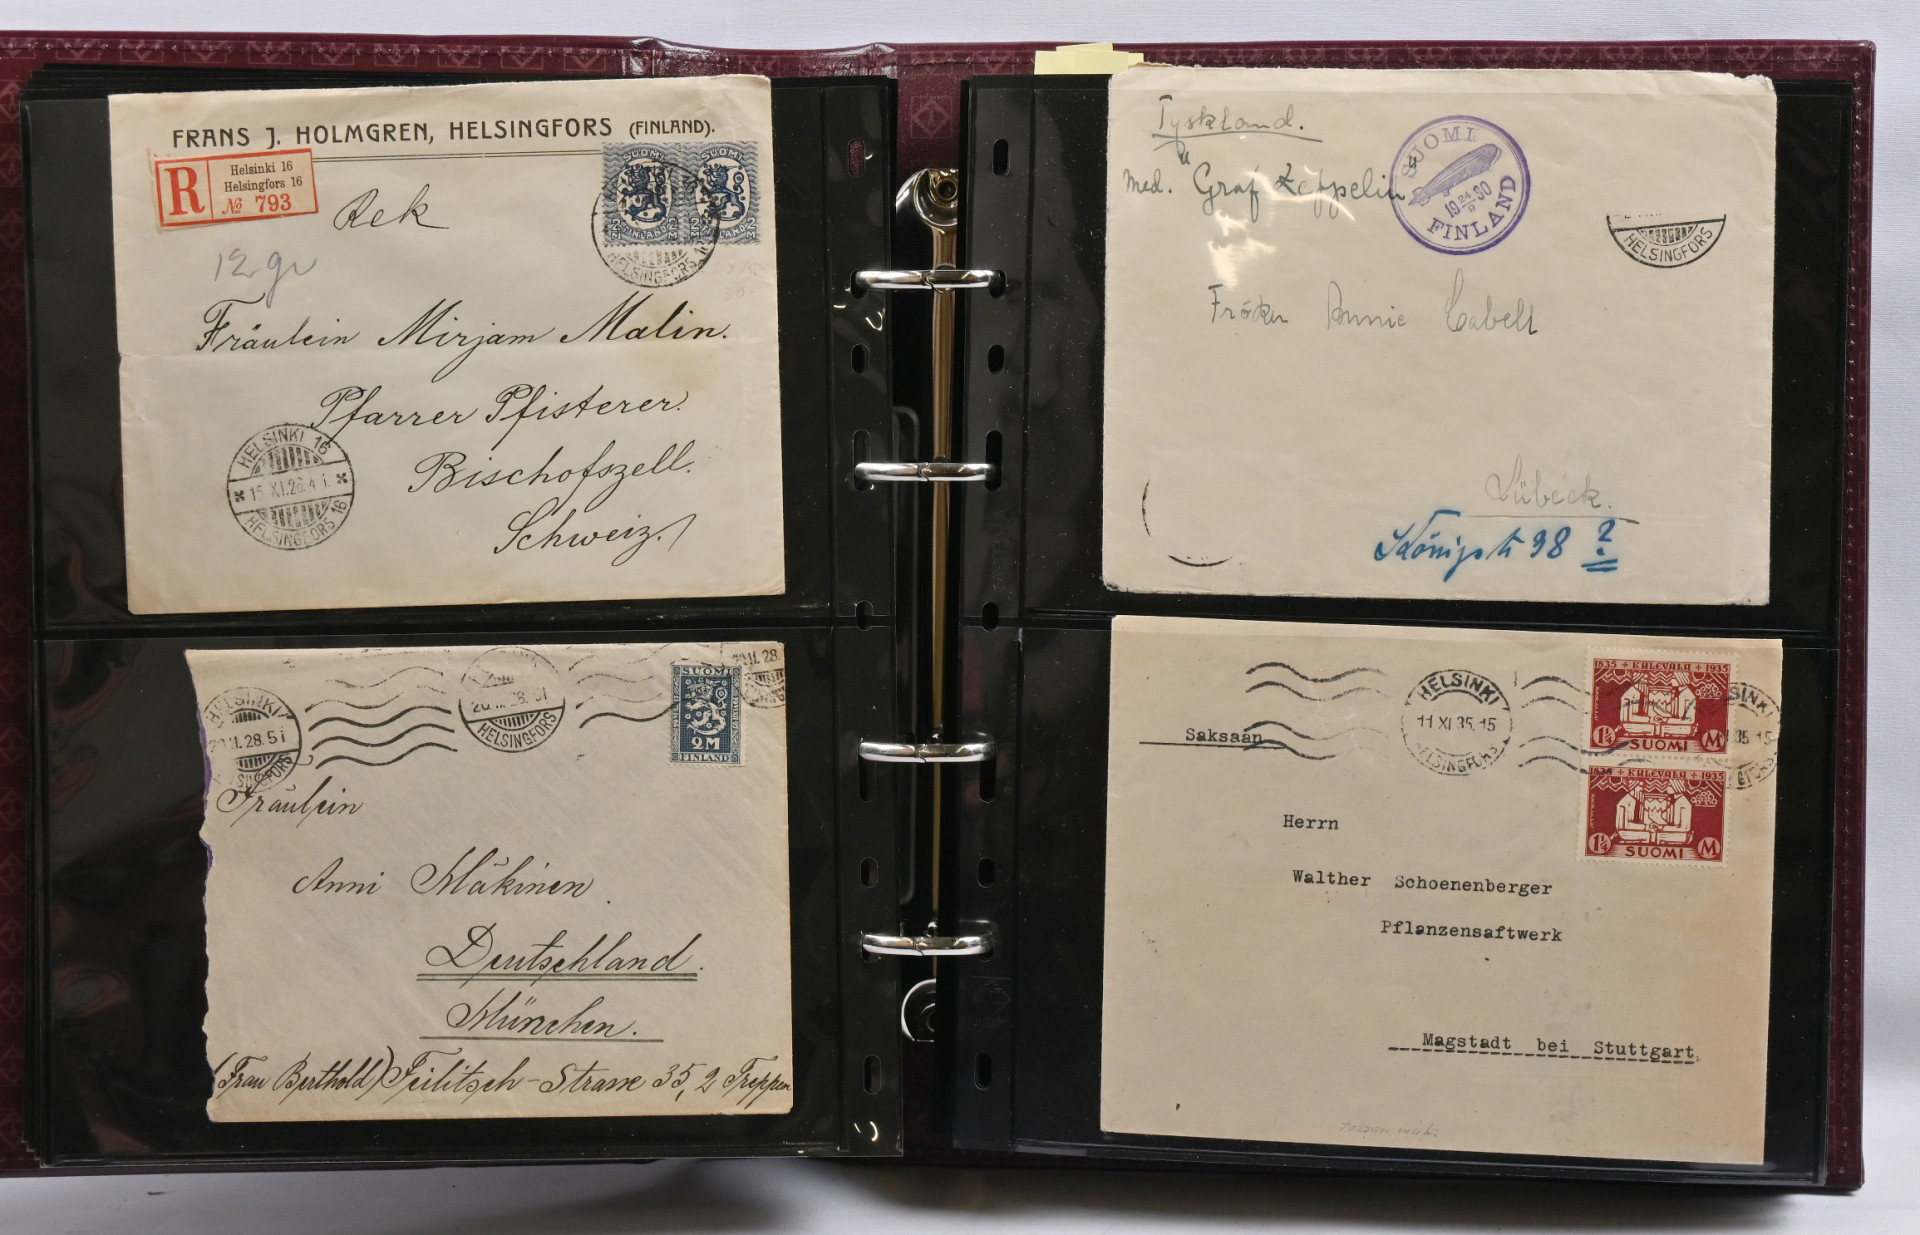 FRANS J. HOLMGREN, HELSINGFORS (FINLAND).
R
Helsinki 16
Helsingfors 16
№ 793
Rek
12 gr
SUOMI SUOMI
2 M 2 M
FINLAND FINLAND
HELSINGFORS 16
Fräulein Mirjam Malin.
Pfarrer Pfisterer.
Bischofszell.
Schweiz.
HELSINKI 16
15.XI.26.4 i.
HELSINGFORS 16
HELSINKI
II.28.5i
HELSINGFORS
20.II.28.5i
HELSINGFORS
II.28.
SUOMI
2 M
FINLAND
Fräulein
Anni Mäkinen
Deutschland.
München.
(Frau Berthold) Feilitsch-Strasse 35, 2 Treppen
Tyskland.
med. "Graf Zeppelin"
SUOMI
19 24/9 30
FINLAND
HELSINGFORS
Fröken Annie Cabell
Lübeck.
Königstr 98 ?
Saksaan
HELSINKI
11 XI 35.15
HELSINGFORS
1835 + KALEVALA + 1935
1¼ SUOMI M
SINKI
35 15
GFORS
1835 + KALEVALA + 1935
1¼ SUOMI M
Herrn
Walther Schoenenberger
Pflanzensaftwerk
Magstadt bei Stuttgart